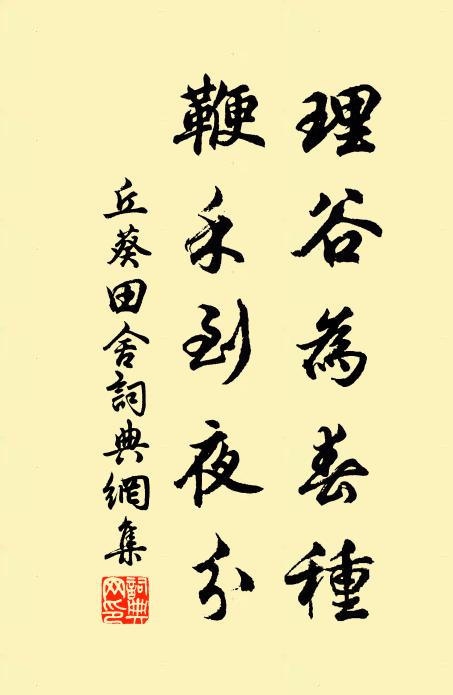 理谷為春種
鞭禾到夜分
丘葵田舍詞典網集
詞典网印